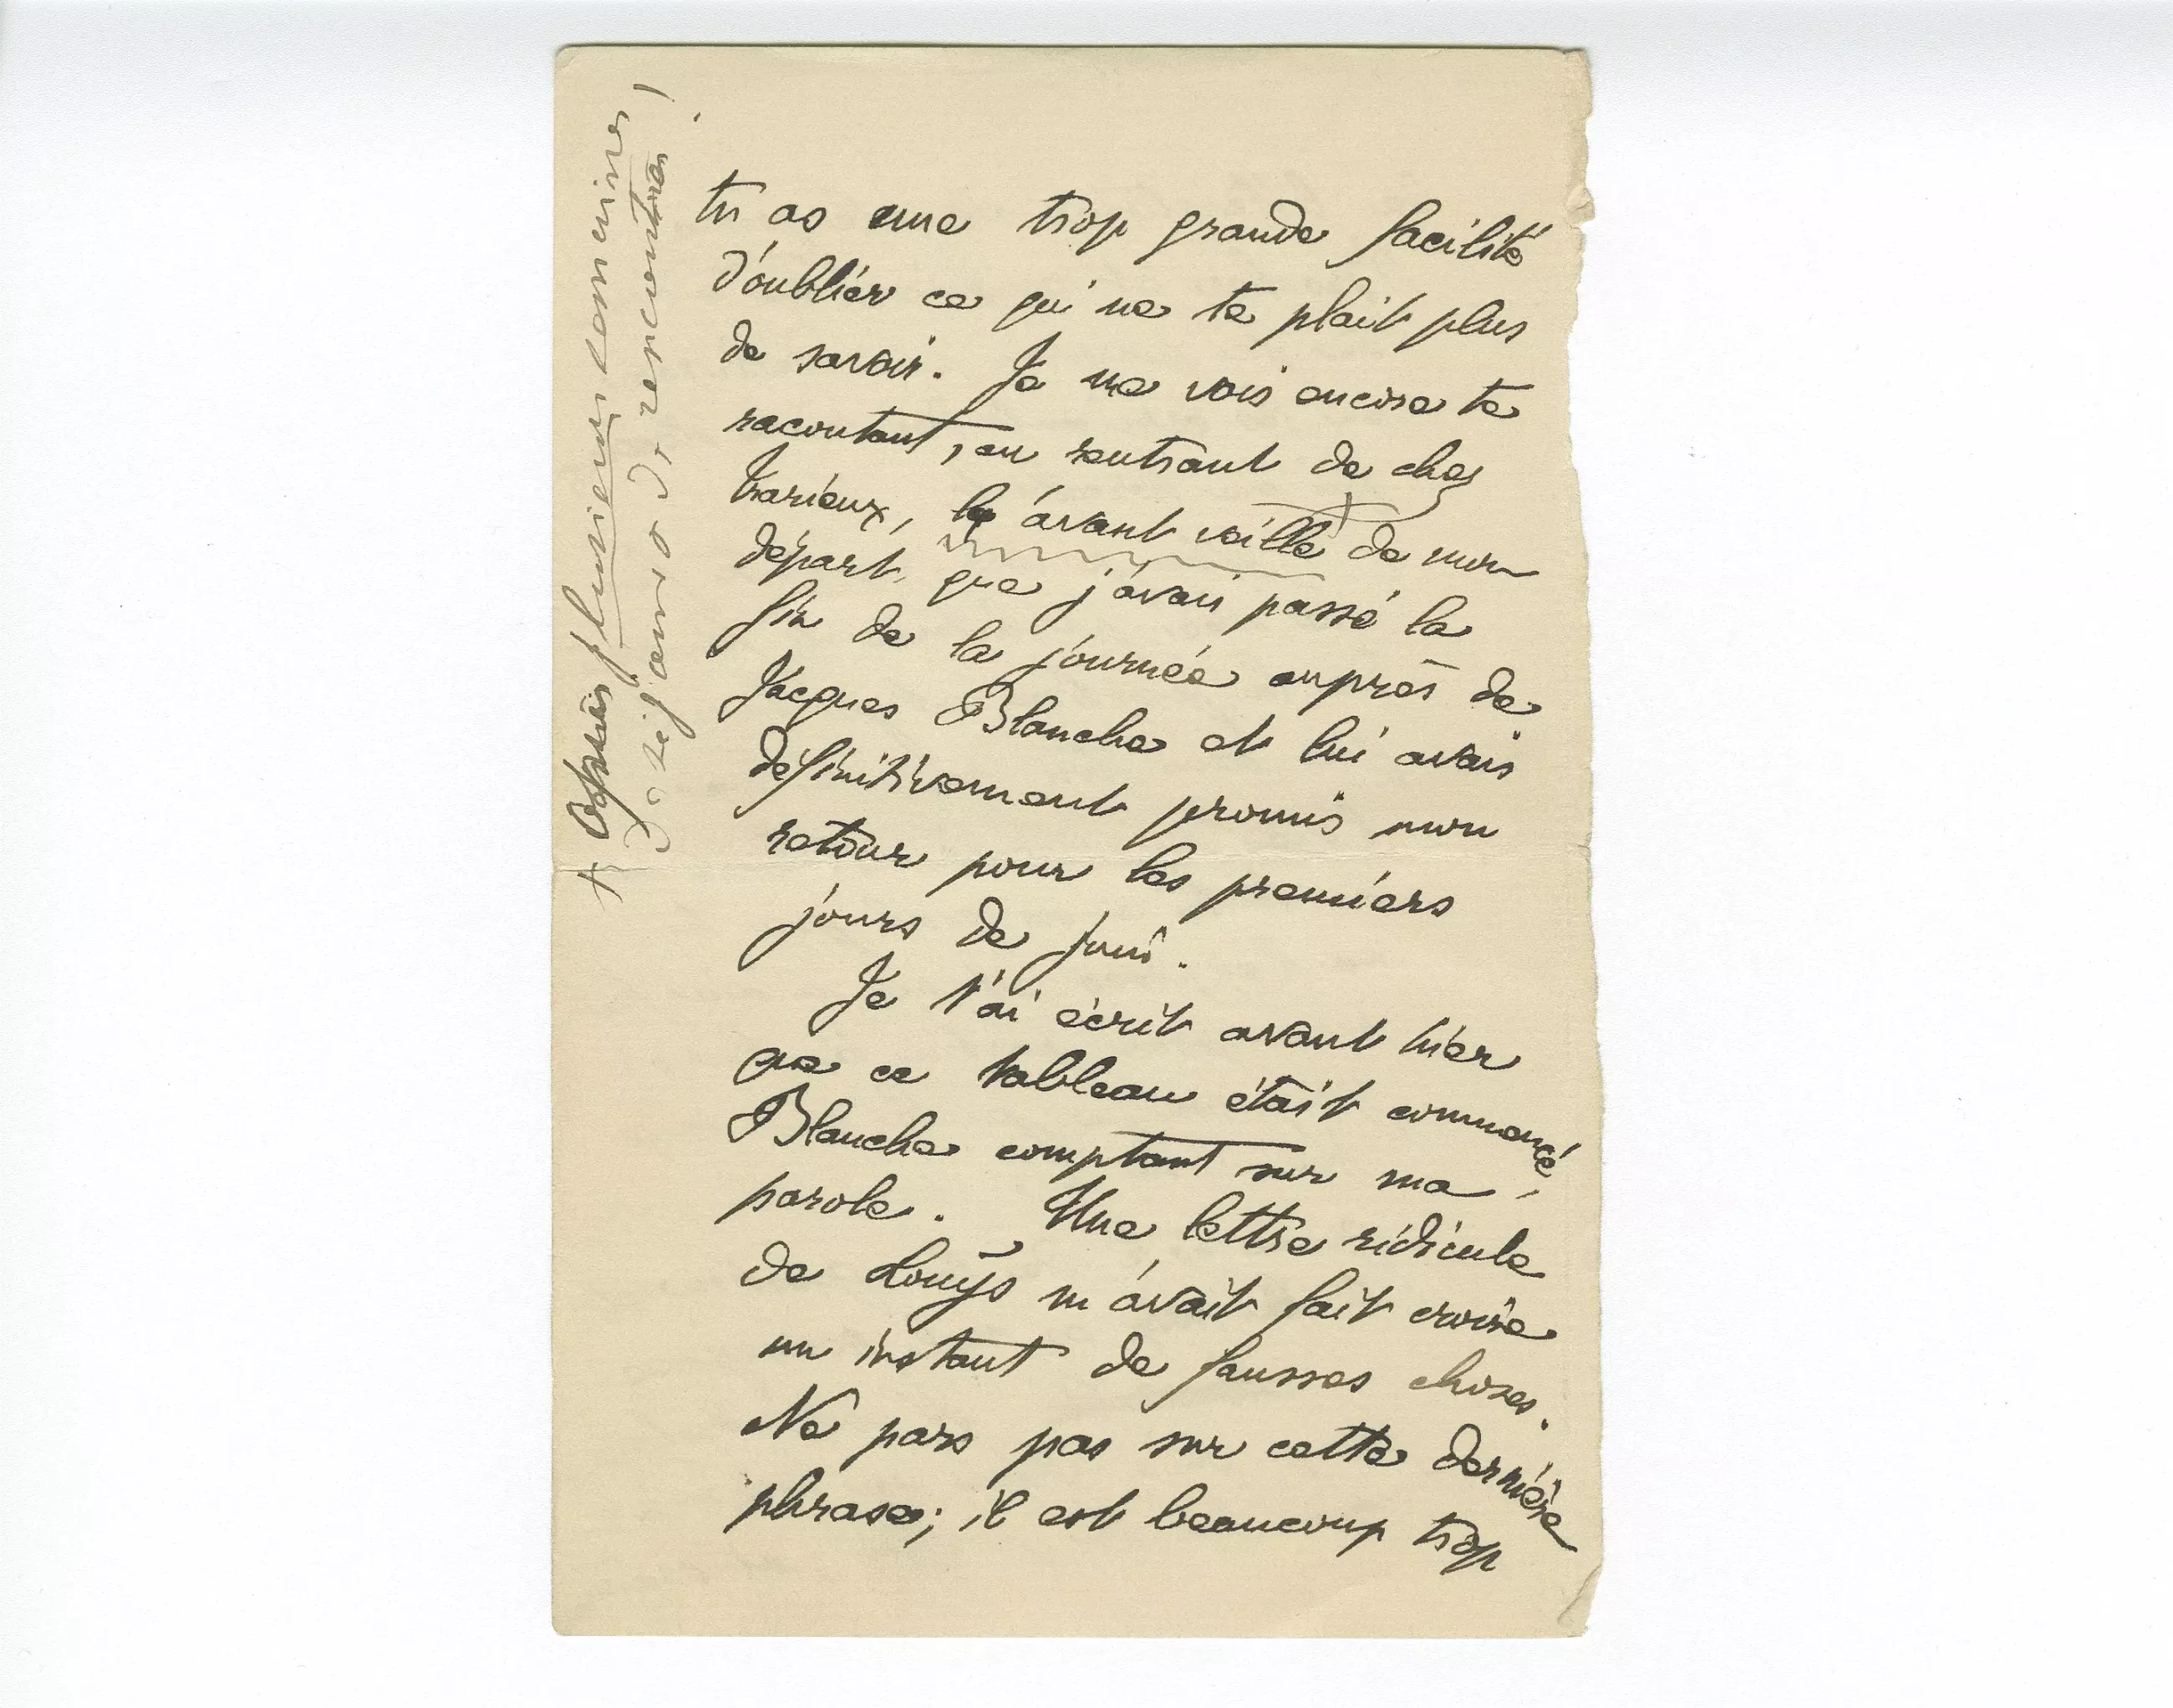 tu as une trop grande facilité
d'oublier ce qui ne te plait plus
de savoir. Je me vois encore te
racontant, en rentrant de chez
Trarieux, la avant veille de mon
départ, que j'avais passé la
fin de la journée auprès de
Jacques Blanche et lui avais
définitivement promis mon
retour pour les premiers
jours de juin.
Je t'ai écrit avant hier
que ce tableau était commencé,
Blanche comptant sur ma
parole. Une lettre ridicule
de Louÿs m'avait fait croire
un instant de fausses choses.
Ne pars pas sur cette dernière
phrase; il est beaucoup trop
+ Après plusieurs semaines
de rencontres!